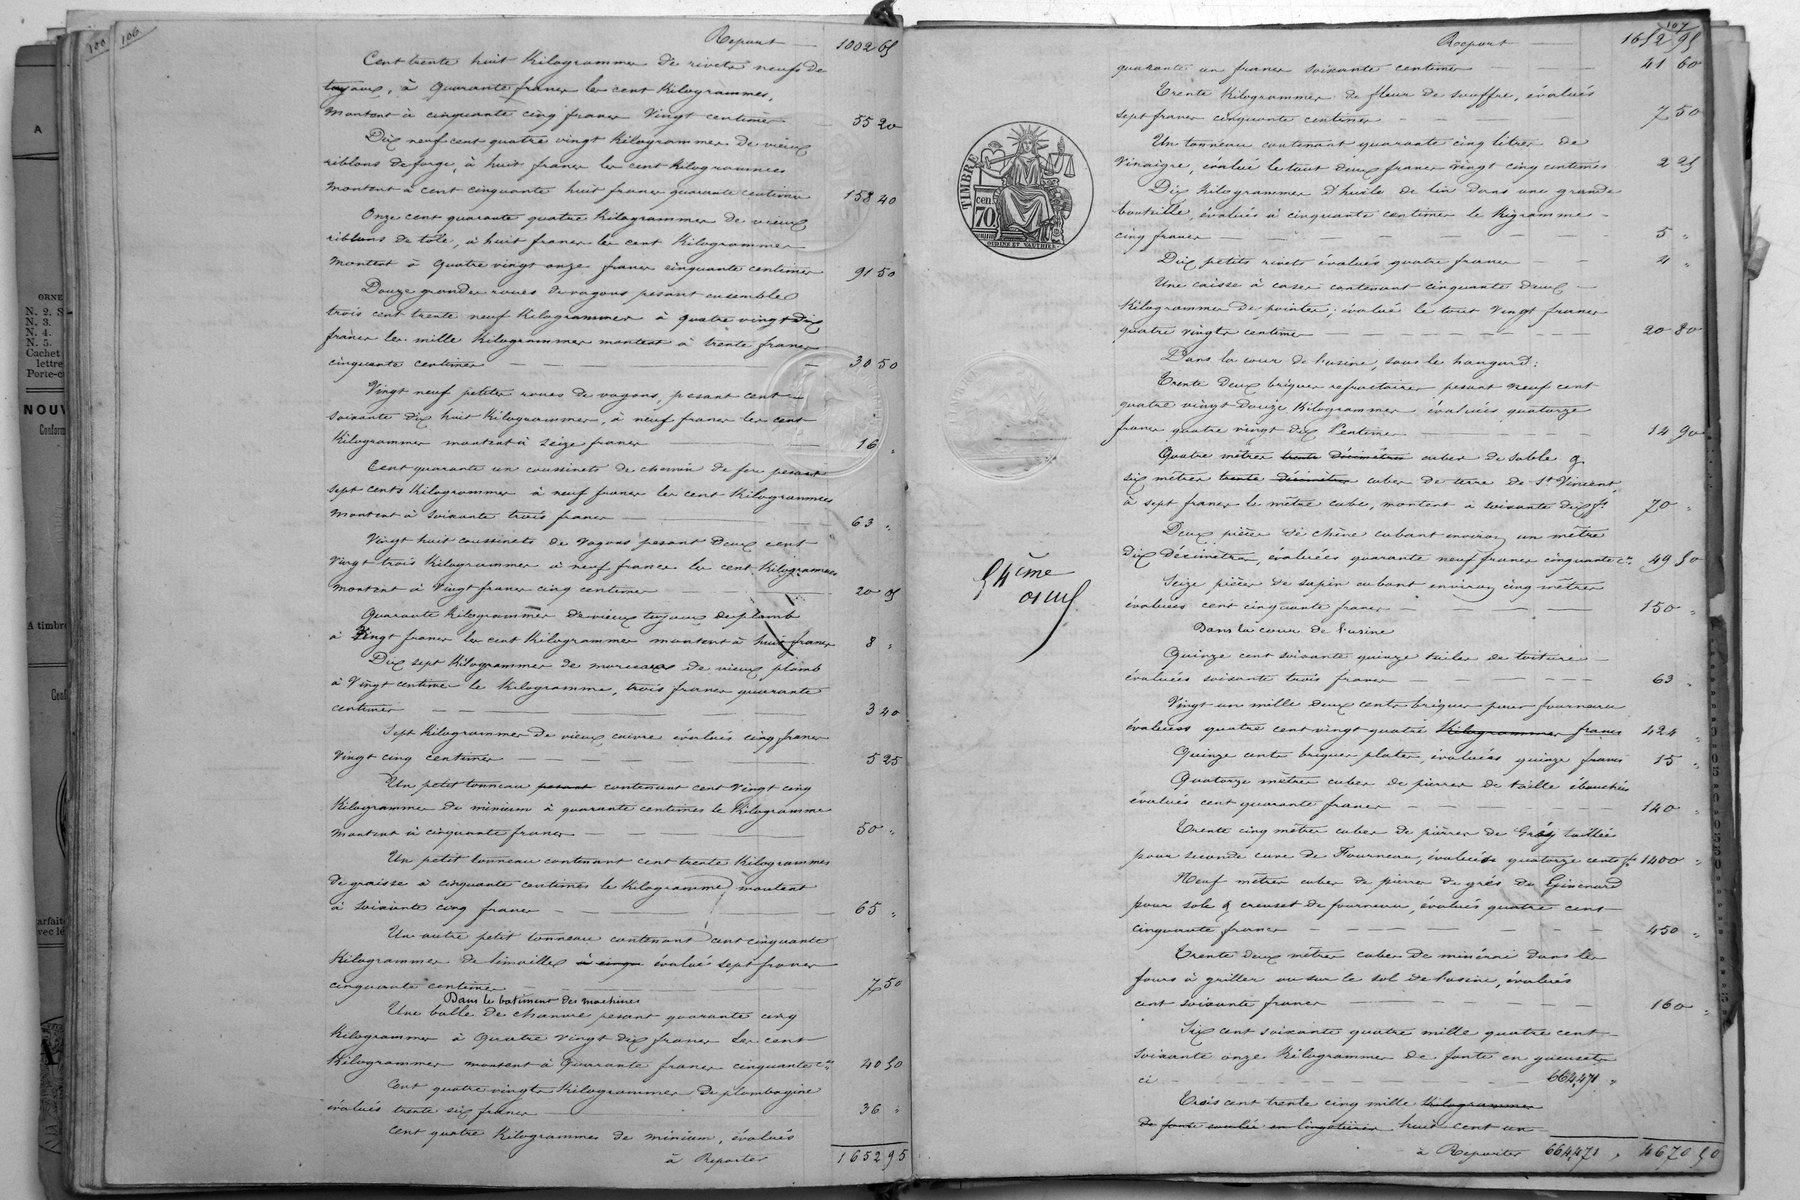 100 106
Report 1002 65
Cent trente huit Kilogrammes de rivets neufs de
tuyaux, à Quarante francs les cent Kilogrammes,
montent à cinquante cinq francs Vingt centimes 55 20
Dix neuf cent quatre vingt Kilogrammes de vieux
riblons de forge, à huit francs les cent Kilogrammes
montent à cent cinquante huit francs quarante centimes 158 40
Onze cent quarante quatre Kilogrammes de vieux
riblons de tôle, à huit francs les cent Kilogrammes
montent à Quatre vingt onze francs cinquante centimes 91 50
Douze grandes roues de wagons pesant ensemble
trois cent trente neuf Kilogrammes à quatre vingt dix
francs les mille Kilogrammes montent à trente francs
cinquante centimes 30 50
Vingt neuf petites roues de wagons, pesant cent
soixante dix huit Kilogrammes, à neuf francs les cent
Kilogrammes montent à seize francs 16 "
Cent quarante un coussinets de chemin de fer pesant
sept cents Kilogrammes à neuf francs les cent Kilogrammes
montent à soixante trois francs 63 "
Vingt huit coussinets de wagons pesant Deux cent
Vingt trois Kilogrammes à neuf francs les cent Kilogrammes
montent à Vingt francs cinq centimes 20 05
Quarante Kilogrammes de vieux tuyaux de plomb
à Vingt francs les cent Kilogrammes montent à huit francs 8 "
Dix sept Kilogrammes de morceaux de vieux plomb
à Vingt centimes le Kilogramme, trois francs quarante
centimes 3 40
Sept Kilogrammes de vieux cuivre évalués cinq francs
Vingt cinq centimes 5 25
Un petit tonneau pesant contenant cent Vingt cinq
Kilogrammes de minium à quarante centimes le Kilogramme
montent à cinquante francs 50 "
Un petit tonneau contenant cent trente Kilogrammes
de graisse à cinquante centimes le Kilogramme montent
à soixante cinq francs 65 "
Un autre petit tonneau contenant cent cinquante
Kilogrammes de limailles à cinqu évalué sept francs
cinquante centimes 7 50
Dans le batiment des machines
Une balle de chanvre pesant quarante cinq
Kilogrammes à Quatre Vingt dix francs les cent
Kilogrammes montent à Quarante francs cinquante cmes 40 50
Cent quatre vingts Kilogrammes de plombagine
évalués trente six francs 36 "
Cent quatre Kilogrammes de minium, évalués
à Reporter 1652 95
107
Report 1652 95
quarante un francs soixante centimes 41 60
Trente Kilogrammes de fleur de souffre, évalués
sept francs cinquante centimes 7 50
Un tonneau contenant quarante cinq litres de
Vinaigre, évalué le tout deux francs Vingt cinq centimes 2 25
Dix Kilogrammes d'huile de lin dans une grande
bouteille, évalués à cinquante centimes le Kigramme
cinq francs 5 "
Dix petits rivets évalués quatre francs 4 "
Une caisse à caser contenant cinquante deux
Kilogrammes de pointes, évalué le tout Vingt francs
quatre vingts centimes 20 80
Dans la cour de l'usine, sous le hangard:
Trente deux briques refractaires pesant neuf cent
quatre vingt douze Kilogrammes évaluées quatorze
francs quatre vingt dix Centimes 14 90
Quatre mètres trente décimètres cubes de sable &
six mètres trente décimètres cubes de terre de St Vincent
à sept francs le mètre cube, montent à soixante dix fs 70 "
Deux pièces de chêne cubant environ un mètre
Dix décimètres, évaluées quarante neuf francs cinquante cs 49 50
Seize pièces de sapin cubant environ cinq mètres
évaluées cent cinquante francs 150 "
Dans la cour de l'usine
Quinze cent soixante quinze tuiles de toiture
évaluées soixante trois francs 63 "
Vingt un mille deux cents briques pour fourneau
évaluées quatre cent vingt quatre Kilogrammes francs 424 "
Quinze cents briques plates, évaluées quinze francs 15 "
Quatorze mètres cubes de pierres de taille ébauchées
évalués cent quarante francs 140 "
Trente cinq mètres cubes de pierres de Grès taillées
pour seconde cuve de Fourneau, évaluées quatorze cents fs 1400 "
Neuf mètres cubes de pierres de grès de
pour sole & creuset de fourneau, évalués quatre cent
cinquante francs 450 "
Trente deux mètres cubes de minérai dans les
fours à griller ou sur le sol de l'usine, évalués
cent soixante francs 160 "
Six cent soixante quatre mille quatre cent
soixante onze Kilogrammes de fonte en gueusets
ci 664,471 "
Trois cent trente cinq mille Kilogrammes
de fonte huit cent un
à Reporter 664,471 , 4670 50
TIMBRE
cen
70
OUDINÉ ET VAUTHIER
54ème
ORNE
N. 2. S
N. 3.
N. 4.
N. 5.
Cachet
lettre
NOUV
Conform
A timbre
A